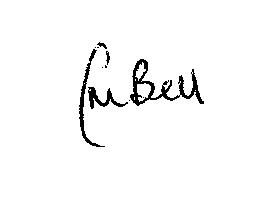 CM Bell